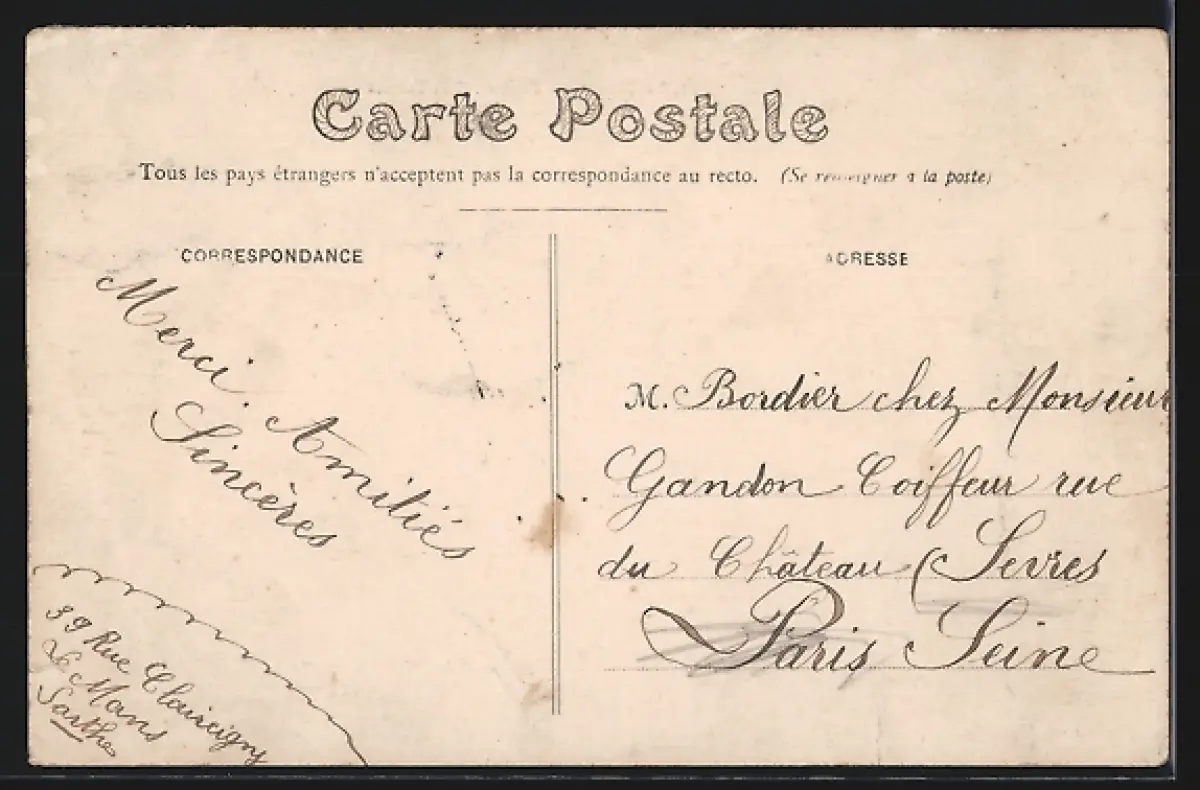 Carte Postale
Tous les pays étrangers n'acceptent pas la correspondance au recto. (Se renseigner à la poste)
CORRESPONDANCE
Merci. Amitiés
Sincères
39 Rue
Le Mans
Sarthe
ADRESSE
M. Bordier chez Monsieur
Gandon Coiffeur rue
du Château (Sevres
Paris Seine